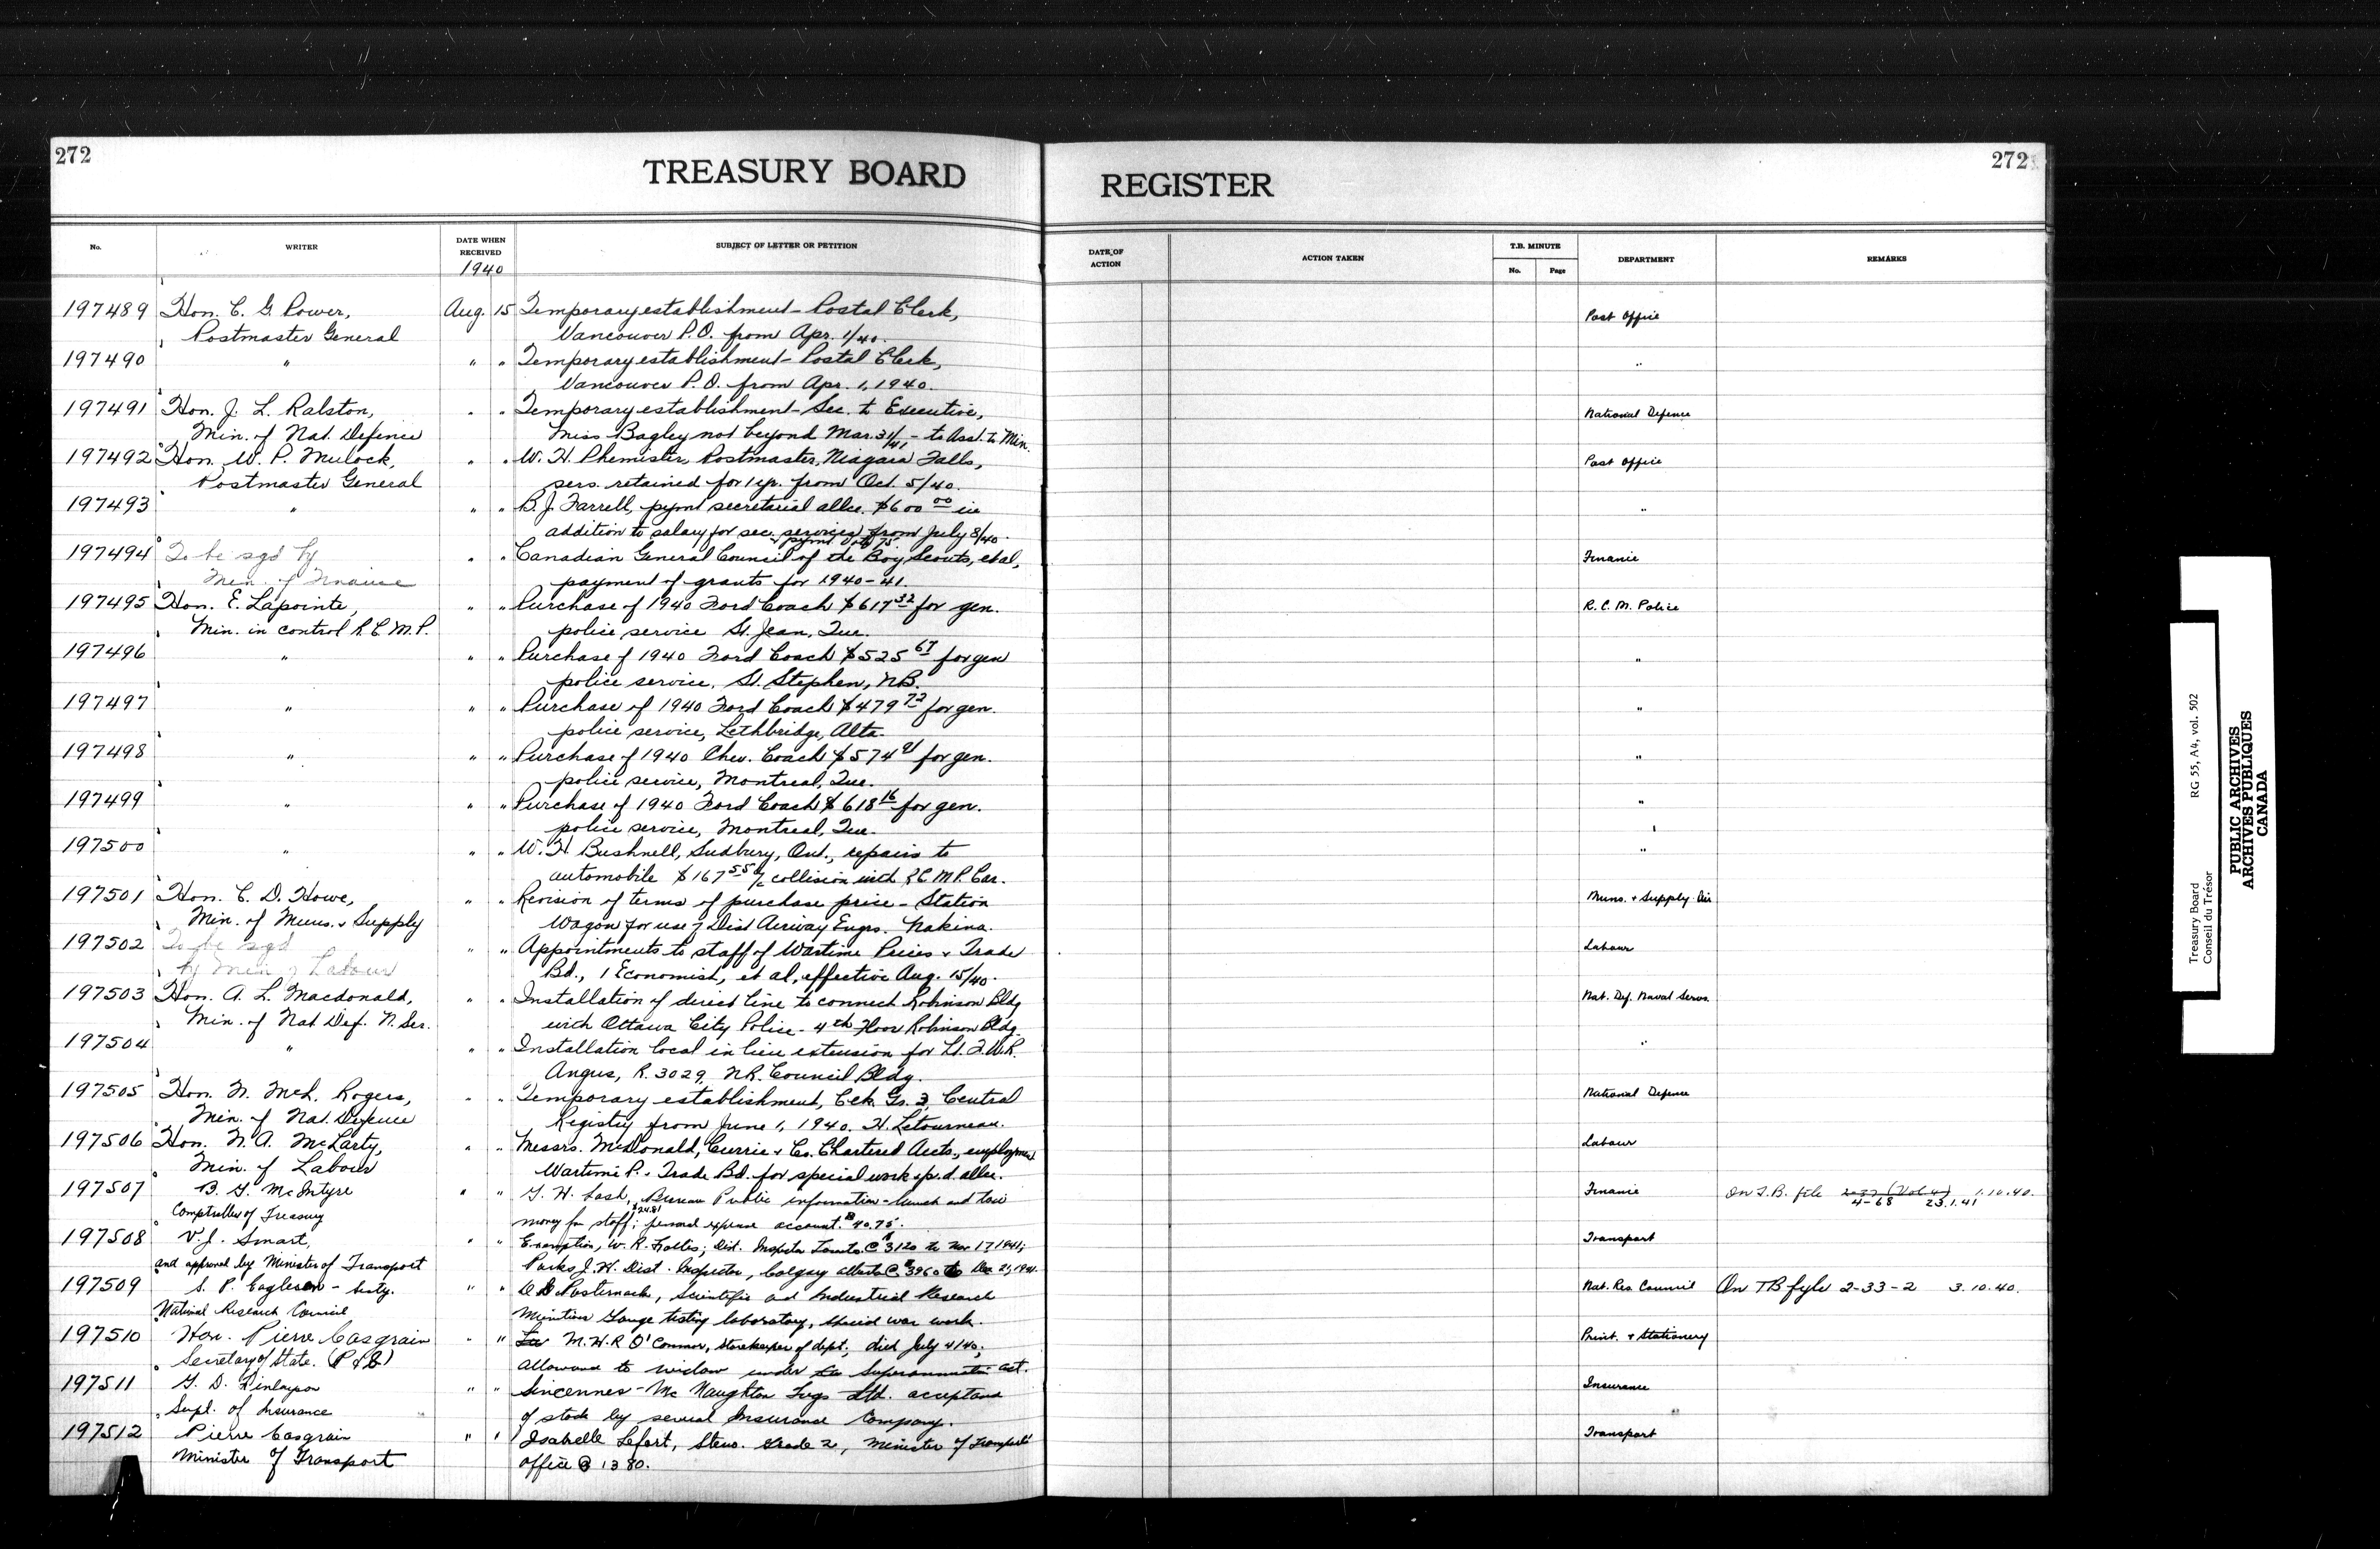 272
TREASURY BOARD
REGISTER
272
No.
WRITER
DATE WHEN
RECEIVED
1940
SUBJECT OF LETTER OR PETITION
DATE OF
ACTION
ACTION TAKEN
T.B. MINUTE
No.
Page
DEPARTMENT
REMARKS
197489 Hon. C. G. Power, Aug. 15 Temporary establishment - Postal Clerk, Post Office
Postmaster General Vancouver P.O. from Apr. 1/40.
197490 " " " Temporary establishment - Postal Clerk, "
Vancouver P.O. from Apr. 1, 1940.
197491 Hon. J. L. Ralston, " " Temporary establishment - Sec. to Executive, National Defence
Min. of Nat. Defence Miss Bagley not beyond Mar. 31/41 - to Asst. to Min.
197492 Hon. W. P. Mulock, " " W. H. Phemister, Postmaster, Niagara Falls, Post Office
Postmaster General sers. retained for 1 yr. from Oct. 5/40.
197493 " " " B. J. Farrell, pymt secretarial allce. $600 00 in "
addition to salary for sec. services from July 8/40.
197494 To be sgd by " " Canadian General Council of the Boy Scouts, et al, Finance
Min. of Finance payment of grants for 1940-41.
197495 Hon. E. Lapointe, " " Purchase of 1940 Ford Coach $617 32 for gen. R.C.M. Police
Min. in control R.C.M.P. police service St. Jean, Que.
197496 " " " Purchase of 1940 Ford Coach $525 67 for gen "
police service, St. Stephen, N.B.
197497 " " " Purchase of 1940 Ford Coach $479 72 for gen. "
police service, Lethbridge, Alta.
197498 " " " Purchase of 1940 Chev. Coach $574 91 for gen. "
police service, Montreal, Que.
197499 " " " Purchase of 1940 Ford Coach $618 16 for gen. "
police service, Montreal, Que.
197500 " " " W. H. Bushnell, Sudbury, Ont., repairs to "
automobile $167 55 a/c collision with R.C.M.P. Car.
197501 Hon. C. D. Howe, " " Revision of terms of purchase price - Station Muns. + Supply Air
Min. of Muns. + Supply Wagon for use of Dist Airway Engrs. Nakina.
197502 To be sgd " " Appointments to staff of Wartime Prices + Trade Labour
by Min of Labour Bd., 1 Economist, et al, effective Aug. 15/40.
197503 Hon. A. L. Macdonald, " " Installation of direct line to connect Robinson Bldg Nat. Def. Naval Servs.
Min. of Nat Def. N. Ser. with Ottawa City Police - 4th Floor Robinson Bldg.
197504 " " " Installation local in lieu extension for Lt. F.W.R. "
Angus, R. 3029, N.R. Council Bldg.
197505 Hon. N. McL. Rogers, " " Temporary establishment, Clk. Gr. 3, Central National Defence
Min. of Nat. Defence Registry from June 1, 1940. H. Letourneau.
197506 Hon. N. A. McLarty, " " Messrs. McDonald, Currie + Co. Chartered Accts., employment Labour
Min. of Labour Wartime P. + Trade Bd. for special work
197507 B. G. McIntyre " " G. H. Lash, Bureau Public information - lunch and taxi Finance On T.B. file 1.10.40.
4-68 23.1.41
Comptroller of Treasury money for staff; $24.81 personal expense account. $90.75.
197508 V. J. Smart, " " Exemption, W. R. Foltes; Dist. Inspector Toronto @ $3120 to Nov 17 1941; Transport
and approval by Minister of Transport Parks J. H. Dist. Inspector, Calgary Alberta @ $3960 to Dec 21, 1941.
197509 S. P. Eagleson - Secty. " " Pasternack, Scientific and Industrial Research Nat. Res. Council On TB fyle 2-33-2 3.10.40.
National Research Council Munitions Gauge testing laboratory, special war work.
197510 Hon. Pierre Casgrain " " M. H. R O'Connor, storekeeper of dept; died July 4/40; Print. + Stationery
Secretary of State. (P & S) allowance to widow under Superannuation act.
197511 G. D. Finlayson " " Sincennes-McNaughton Tugs Ltd. acceptance Insurance
Supt. of Insurance of stock by several Insurance Company.
197512 Pierre Casgrain " " Isabelle Lefort, Steno. Grade 2, Minister of Transport Transport
Minister of Transport office @ 1380.
Treasury Board RG 55, A4, vol. 502
Conseil du Trésor
PUBLIC ARCHIVES
ARCHIVES PUBLIQUES
CANADA